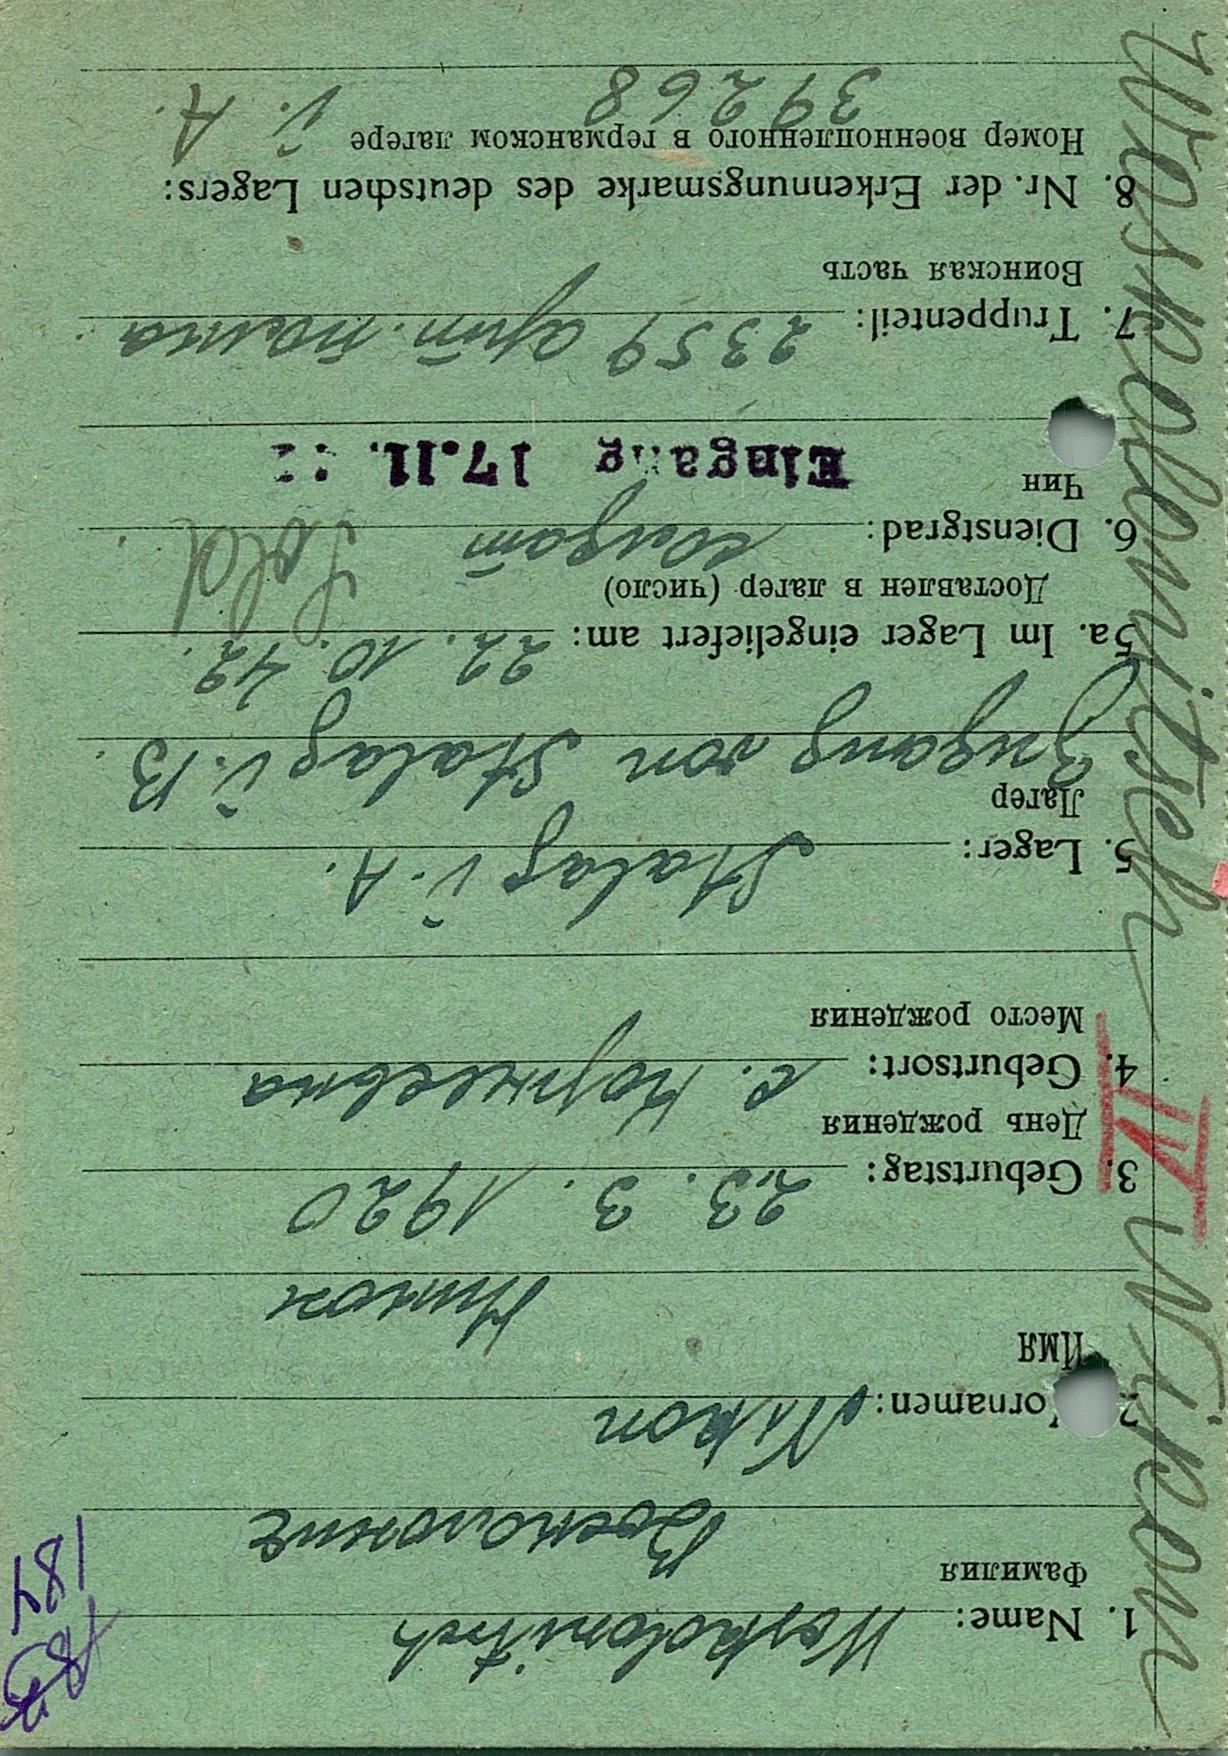 184
1. Name: Woskolonitsch
Фамилия
Восколонис
2. Vornamen: Nikon
Имя
Никон
3. Geburtstag: 23. 3. 1920
День рождения
4. Geburtsort: с.
Место рождения
5. Lager: Stalag V. A.
Лагер
Zugang von Stalag V. B.
5a. Im Lager eingeliefert am: 22. 10. 42.
Доставлен в лагер (число)
6. Dienstgrad: солдат Sold.
Чин
Eingang 17.11.
7. Truppenteil: 2359 арт. полка
Воинская часть
8. Nr. der Erkennungsmarke des deutschen Lagers:
Номер военнопленного в германском лагере
39268 V. A.
Woskolonitsch Nikon
IV